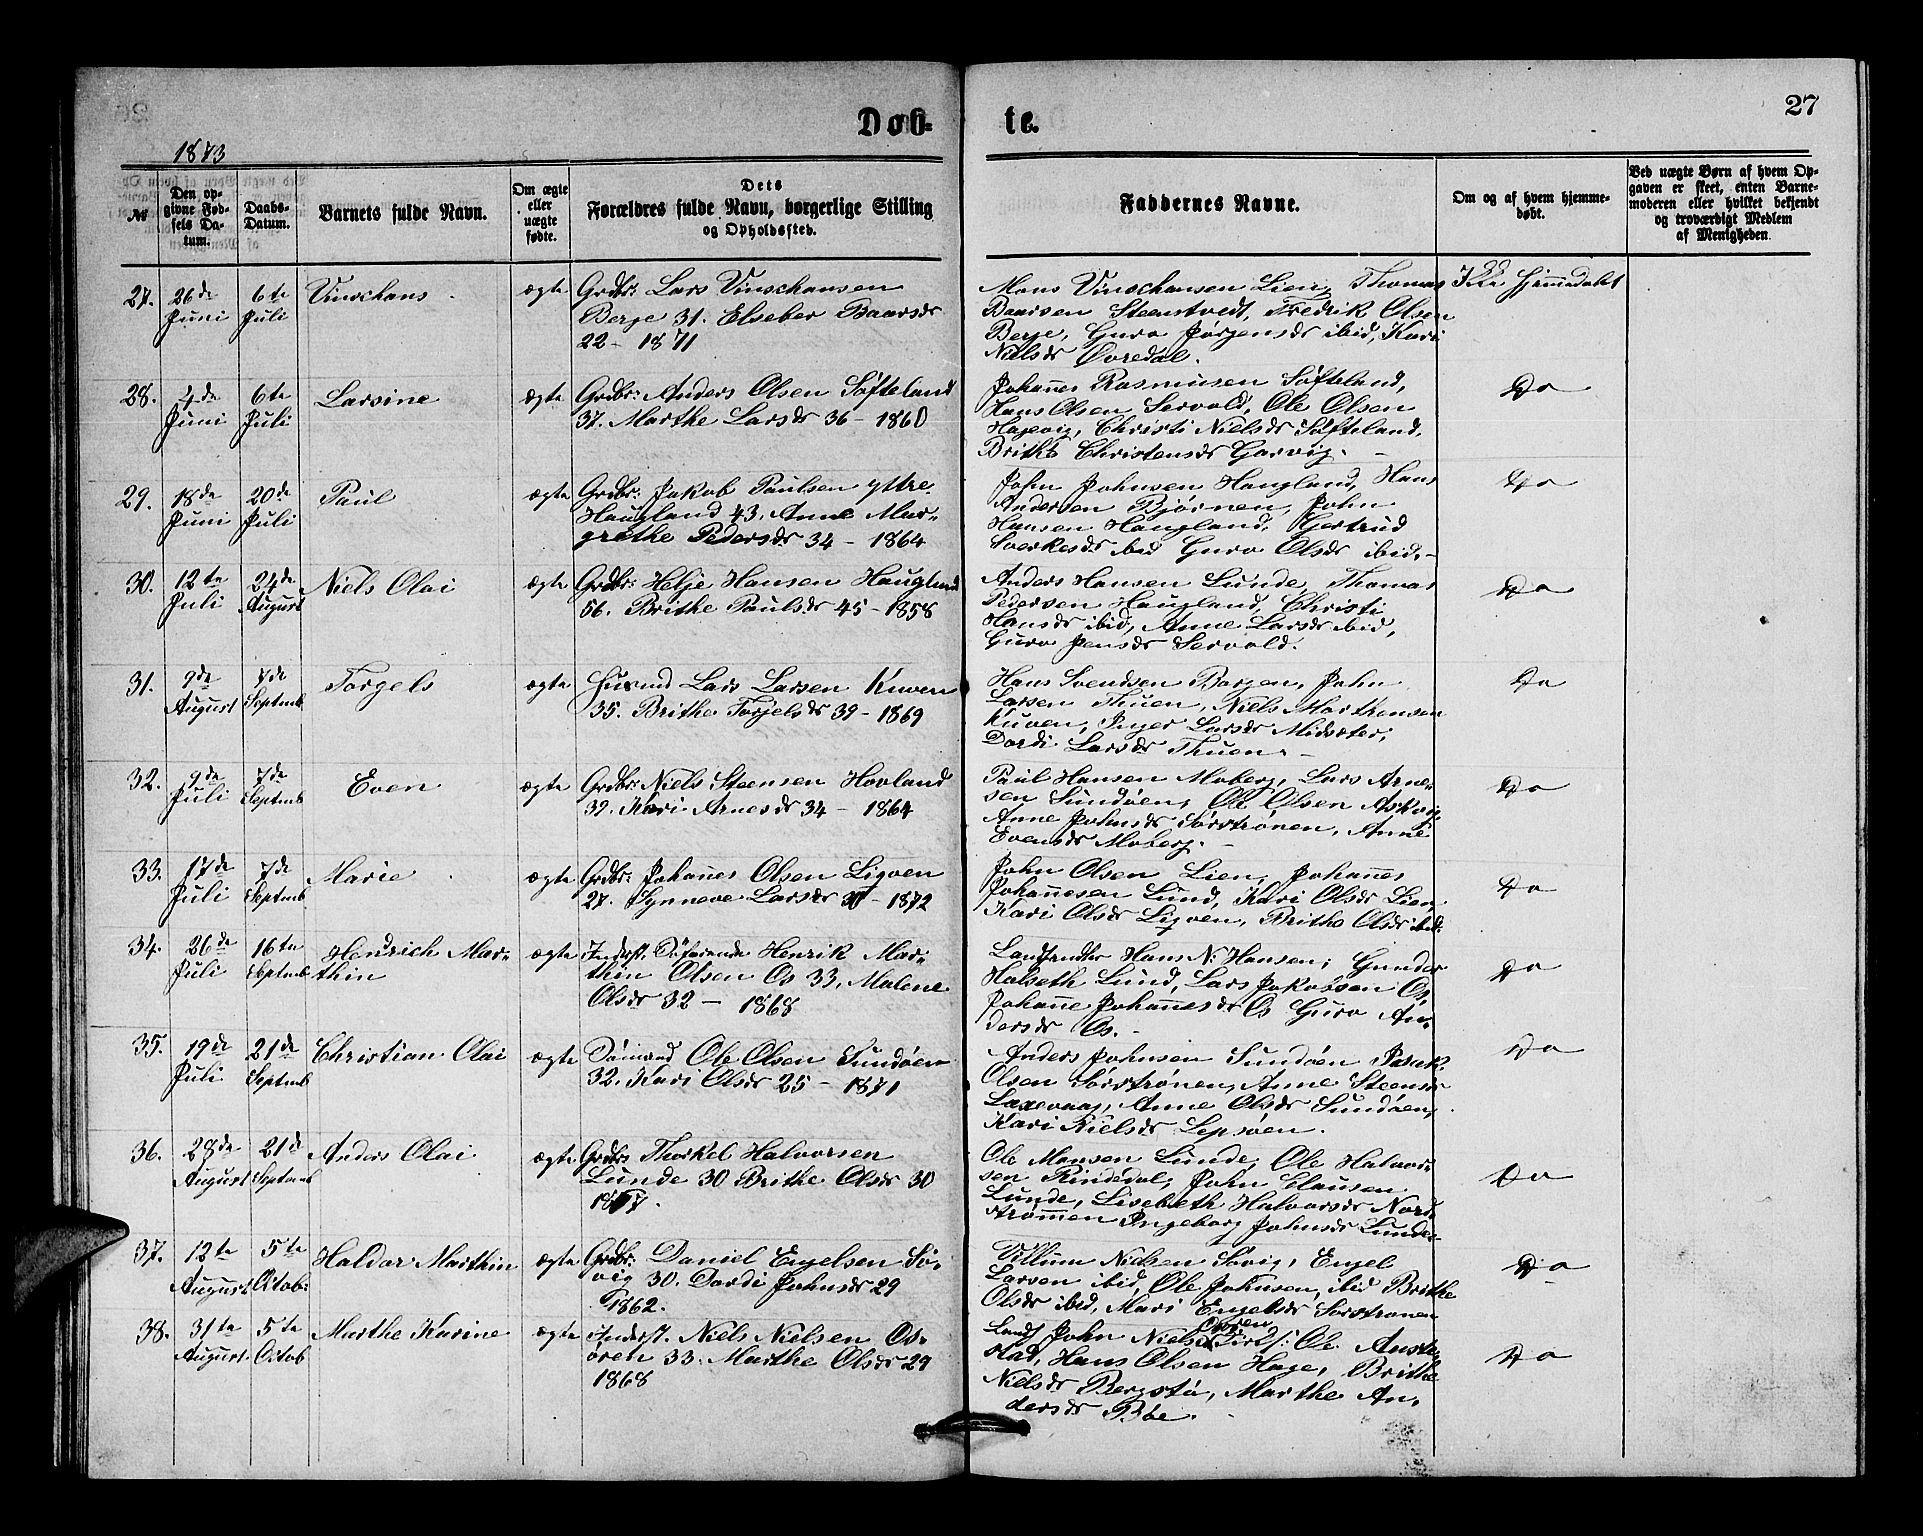 Døb-
te.
27
1873
№
Den op-
givne Fød-
sels Da-
tum.
Daabs-
Datum.
Barnets fulde Navn.
Om ægte
eller
uægte
fødte.
Dets
Forældres fulde Navn, borgerlige Stilling
og Opholdssted.
Faddernes Navne.
Om og af hvem hjemme-
døbt.
Ved uægte Børn af hvem Op-
gaven er skeet, enten Barne-
moderen eller hvilket bekjendt
og troværdigt Medlem
af Menigheden.
27. 26de Juni 6te Juli Vinschans ægte Grdbr: Lars Vinschansen
Berge 31. Elseber Baarsdr
22 - 1871
Mons Vinschansen Lien, Thomas Ikke Hjemmedøbt
Baarsen Steenstvedt, Fredrik Olsen
Berge, Guro Jørgensdr ibid, Kari
Nielsdr Øvredal.
28. 4de Juni 6te Juli Larsine ægte Grdbr: Anders Olsen Søfteland
37. Marthe Larsdr 36 - 1860
Johannes Rasmusen Søfteland, Do
Hans Olsen Servold, Ole Olsen
Hagevig, Christi Nielsdr Søfteland,
Brithe Christensdr Garvig.
29. 18de Juni 20de Juli Paul ægte Grdbr: Jakob Paulsen yttre
Haugland 43, Anne Mar-
grethe Pedersdr 34 - 1864
John Johnsen Haugland, Hans Do
Andersen Bjørnen, John
Hansen Haugland, Gertrud
Sverkesdr ibid Guro Olsdr ibid.
30. 12te Juli 24de August Niels Olai ægte Grdbr: Helje Hansen Haugland
56. Brithe Paulsdr 45 - 1858
Anders Hansen Lunde, Thomas Do
Pedersen Haugland, Christi
Hansdr ibid, Anne Larsdr ibid,
Guro Jensdr Servold.
31. 9de August 7de Septmb Torgels ægte Husmd Lars Larsen Kuven
35. Brithe Torjelsdr 39 - 1869
Hans Svendsen Borgen, John Do
Larsen Thuen, Niels Marthensen
Kuven, Inger Larsdr Midsæter,
Dordi Larsdr Thuen.
32. 9de Juli 7de Septmb Even ægte Grdbr: Niels Steensen Hovland
39. Kari Arnesdr 34 - 1864
Paul Hansen Moberg, Lars Arne- Do
sen Sundøen, Ole Olsen Askvig,
Anne Johnsdr Sørstrønen, Anne
Evensdr Moberg.
33. 17de Juli 7de Septmb Marie ægte Grdbr: Johannes Olsen Ligven
27. Synneve Larsdr - 1872
John Olsen Lien, Johannes Do
Johannesen Lund, Kari Olsdr Lien
Kari Olsdr Ligven, Brithe Olsdr ibid.
34. 26de Juli 16te Septmb Hendrich Mar-
thin ægte Inderst. Søfarende Henrik Mar-
thin Olsen Os 33, Malene
Olsdr 32 - 1868
Landhandler Hans N. Hansen, Gunder Do
Halseth Lund, Lars Jakobsen Os,
Johanne Johannesdr Os Guro An-
dersdr Os.
35. 19de Juli 21de Septmb Christian Olai ægte Sømand Ole Olsen Sundøen
32. Kari Olsdr 25 - 1871
Anders Johnsen Sundøen Isak Do
Olsen Sørstrønen, Anne Steensdr
Laxevaag, Anne Olsdr Sundøen,
Kari Nielsdr Lepsøen.
36. 28de August 21de Septmb Anders Olai ægte Grdbr: Thorkel Halvorsen
Lunde 30 Brithe Olsdr 30
Ole Monsen Lunde, Ole Halvor- Do
sen Rindedal, John Clausen
Lunde, Lisebeth Halvorsdr Nord-
strønnen Ingeborg Johnsdr Lunde
37. 12te August 5te Octob: Haldor Marthin ægte Grdbr: Daniel Engelsen Sø-
vig 30. Dordi Johnsdr 29
1862.
Villum Nielsen Søvig, Engel Do
Larsen ibid, Ole Johnsen, ibid Brithe
Olsdr ibid, Mari Engelsdr Sørstrønen
38. 31te August 5te Octob Marthe Karine ægte Inderst. Niels Nielsen Os-
øren 33. Marthe Olsdr 29
1868
Landh John Nielsen Osøren Ole Do
Hans Olsen Hage, Brithe
Nielsdr Bergstø, Marthe An-
dersdr Bøe.